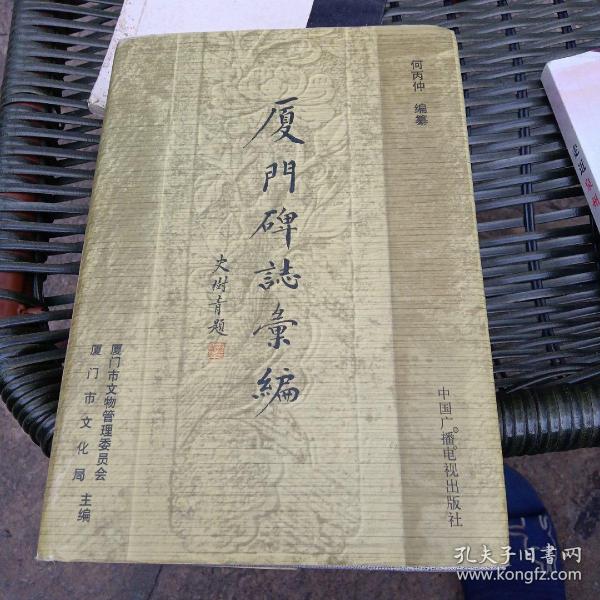 何丙仲 编纂
厦門碑誌彙編
史树青题
厦门市文物管理委员会
厦门市文化局 主编
中国广播电视出版社
孔夫子旧书网
www.kongfz.com